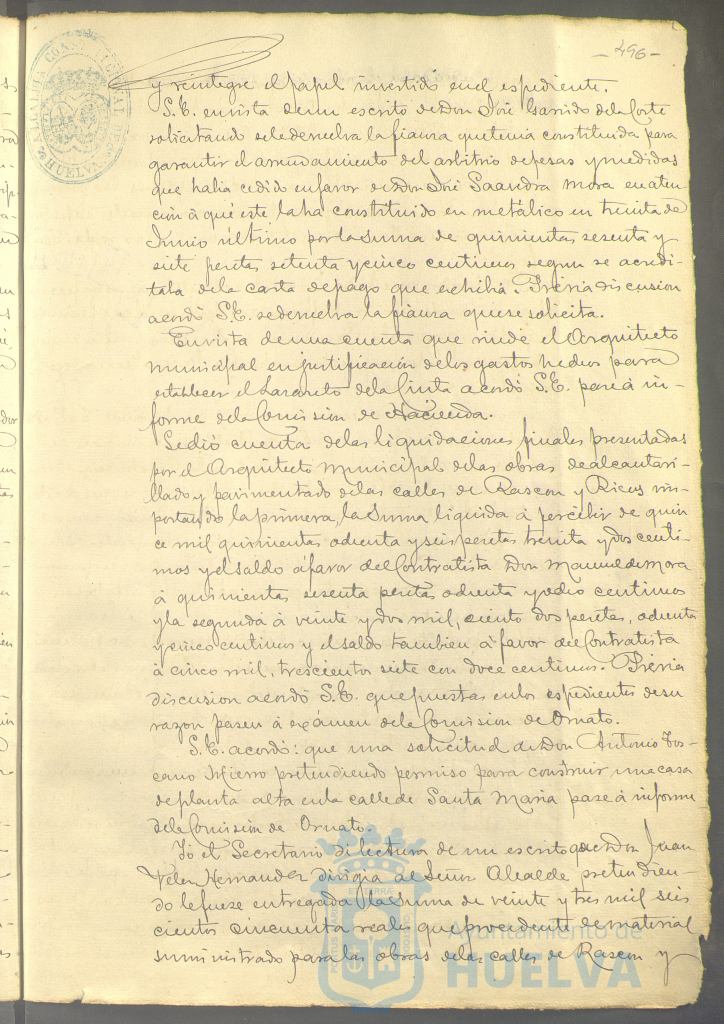 - 496 -
ALCALDIA CONSTITUCIONAL DE HUELVA
y reintegre el papel invertido en el espediente.
S.E. en vista de un escrito de Don José Garrido de la Corte
solicitando se le devuelva la fianza que tenia constituida para
garantir el arrendamiento del arbitrio de pesas y medidas
que habia cedido en favor de Don José Saandra Mora en aten-
ción á qué este la ha constituido en metálico en treinta de
Junio último por la suma de quinientas sesenta y
siete pesetas setenta y cinco centimos segun se acredi-
taba de la carta de pago que exhibia. Prévia discusion
acordó S.E. se devuelva la fianza que se solicita.
En vista de una cuenta que rinde el Arquitecto
municipal en justificación de los gastos hechos para
establecer el Lazareto de la Cinta acordó S.E. pase á in-
forme de la Comision de Hacienda.
Se dió cuenta de las liquidaciones finales presentadas
por el Arquitecto Municipal de las obras de alcantari-
llado y pavimentado de las calles de Rascon y Ricos im-
portando la primera, la suma liquida á percibir de quin
ce mil quinientas ochenta y seis pesetas treinta y dos centi-
mos y el saldo á favor del Contratista Don Manuel de Mora
á quinientas sesenta pesetas ochenta y ocho centimos
y la segunda á veinte y dos mil, ciento dos pesetas, ochenta
y cinco centimos y el saldo tambien á favor del Contratista
á cinco mil, trescientos siete con doce centimos. Prévia
discusion acordó S.E. que puestas en los espedientes de su
razon pasen á exámen de la Comision de Ornato.
S.E. acordó: que una solicitud de Don Antonio Tos-
cano Hierro pretendiendo permiso para construir una casa
de planta alta en la calle de Santa Maria pase á informe
de la Comisión de Ornato.
Yo el Secretario di lectura de un escrito que Don Juan
Velez Hernandez dirigia al Señor Alcalde pretendien-
do le fuese entregada la suma de veinte y tres mil seis
cientos cincuenta reales que procedente de material
suministrado para las obras de las calles de Rascon y
Ayuntamiento de
HUELVA